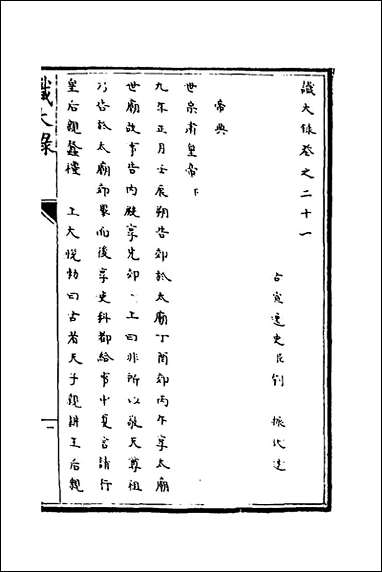 識大錄卷之二十一
古宣逸史臣劉 振 述
帝典
世宗肅皇帝下
九年正月壬辰朔告郊於太廟丁酉郊丙午享太廟
世廟故事告內殿享先郊 上曰非所以敬天尊祖
乃告於太廟郊畢而後享吏科都給事中夏言請行
皇后親蠶禮 上大悅勅曰古者天子親耕王后親
識大錄
一